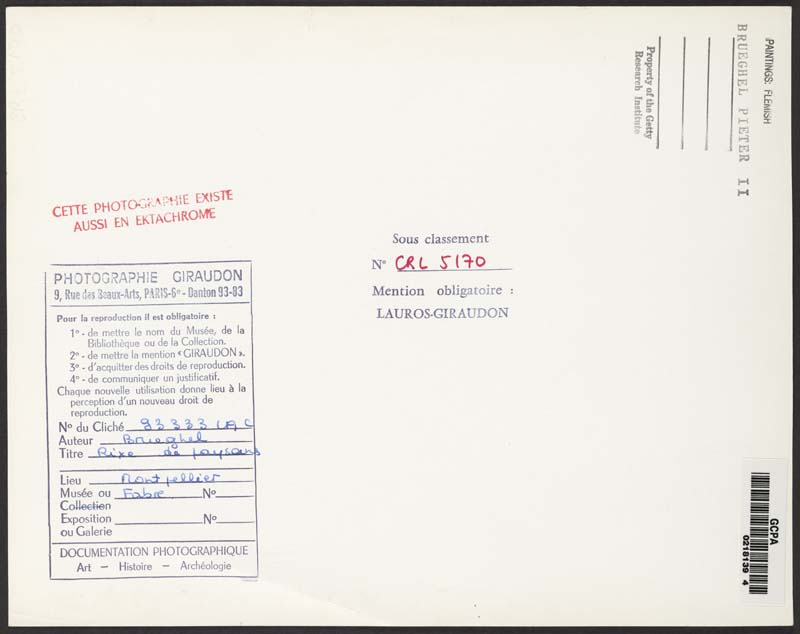 PAINTINGS: FLEMISH
BRUEGHEL PIETER II
Property of the Getty
Research Institute
CETTE PHOTOGRAPHIE EXISTE
AUSSI EN EKTACHROME
Sous classement
N° CRL 5170
Mention obligatoire :
LAUROS-GIRAUDON
PHOTOGRAPHIE GIRAUDON
9, Rue des Beaux-Arts, PARIS-6e - Danton 93-83
Pour la reproduction il est obligatoire :
1° - de mettre le nom du Musée, de la
Bibliothèque ou de la Collection.
2° - de mettre la mention « GIRAUDON ».
3° - d'acquitter des droits de reproduction.
4° - de communiquer un justificatif.
Chaque nouvelle utilisation donne lieu à la
perception d'un nouveau droit de
reproduction.
N° du Cliché 93333 LAC
Auteur Brueghel
Titre Rixe de paysans
Lieu Montpellier
Musée ou Fabre N°
Collection
Exposition N°
ou Galerie
DOCUMENTATION PHOTOGRAPHIQUE
Art - Histoire - Archéologie
GCPA
0218139 4